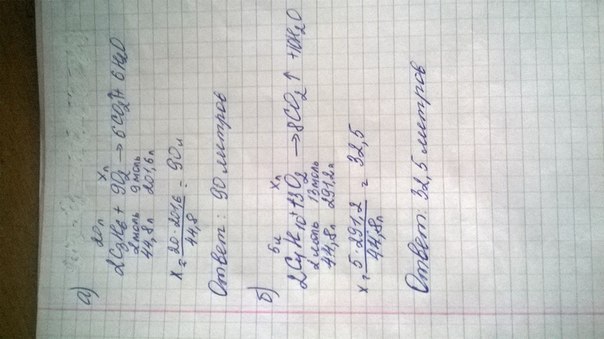 а)
20л xл
2C3H6 + 9O2 → 6CO2↑ + 6H2O
2моль 9моль
44,8л 201,6л
x = 20·201,6 / 44,8 = 90л
Ответ: 90 литров
б)
5л xл
2C4H10 + 13O2 → 8CO2↑ + 10H2O
2моль 13моль
44,8л 291,2л
x = 5·291,2 / 44,8л = 32,5
Ответ: 32,5 литров